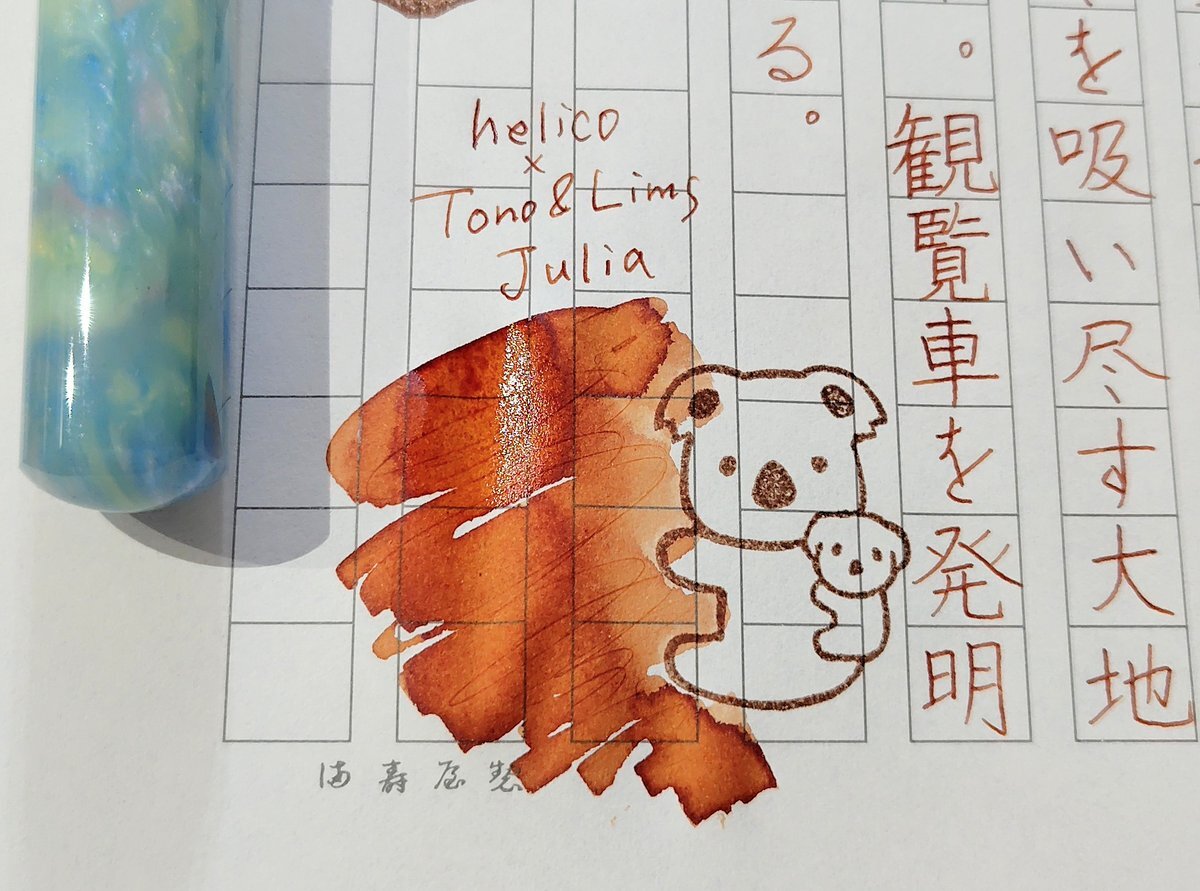 を吸い尽す大地
。観覧車を発明
る。
helico
×
Tono&Lims
Julia
満寿屋製